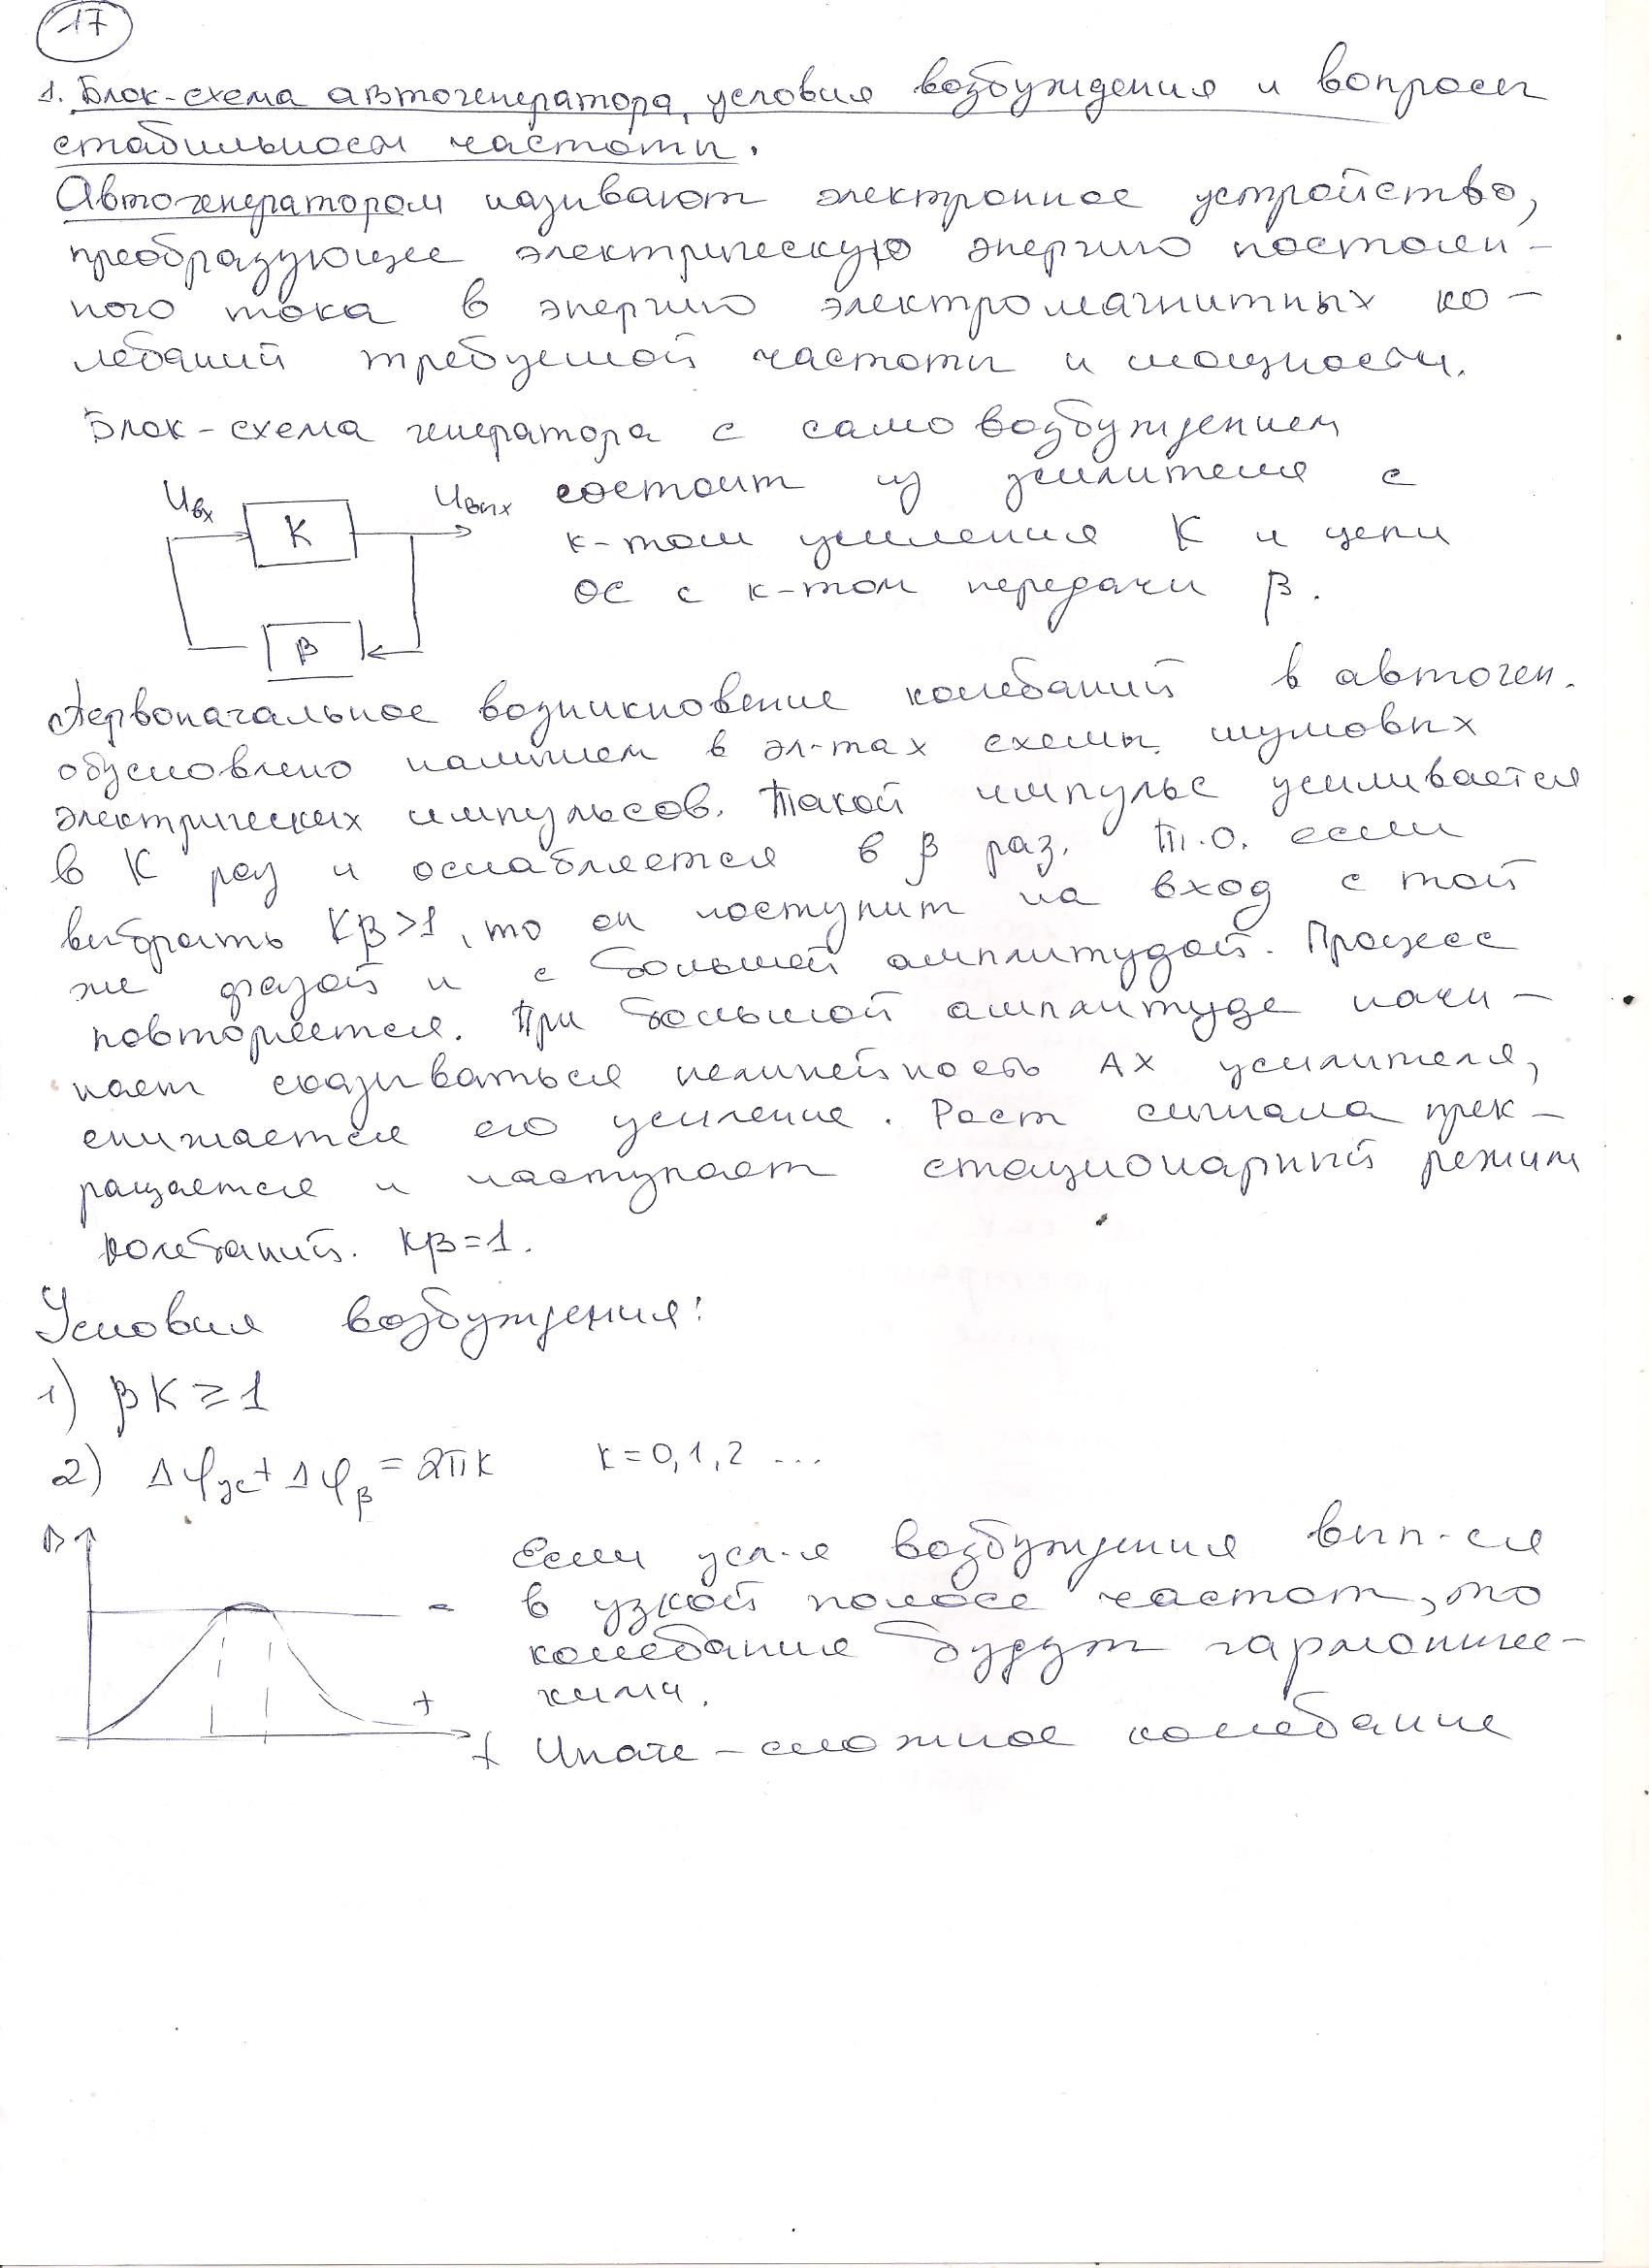 17
1. Блок-схема автогенератора, условия возбуждения и вопросы
стабильности частоты.
Автогенератором называют электронное устройство,
преобразующее электрическую энергию постоян-
ного тока в энергию электромагнитных ко-
лебаний требуемой частоты и мощности.
Блок-схема генератора с самовозбуждением
Uвх K Uвых состоит из усилителя с
к-том усиления K и цепи
ОС с к-том передачи β.
β
Первоначальное возникновение колебаний в автоген.
обусловлено наличием в эл-тах схемы шумовых
электрических импульсов. Такой импульс усиливается
в K раз и ослабляется в β раз. Т.О. если
выбрать Kβ>1, то он поступит на вход с той
же фазой и с большей амплитудой. Процесс
повторяется. При большой амплитуде начи-
нает сказываться нелинейность АХ усилителя,
снижается его усиление. Рост сигнала прек-
ращается и наступает стационарный режим
колебаний. Kβ=1.
Условия возбуждения:
1) βK ≥ 1
2) Δφус + Δφβ = 2πк к=0,1,2 ...
Если усл-я возбуждения вып-ся
в узкой полосе частот, то
колебания будут гармоничес-
кими.
f Иначе – сложное колебание